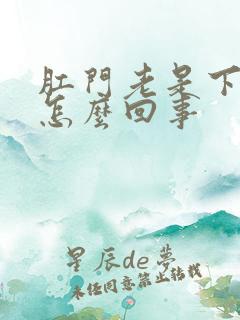 肛門老是下
怎麼回事
星辰de夢
未经同意禁止转载